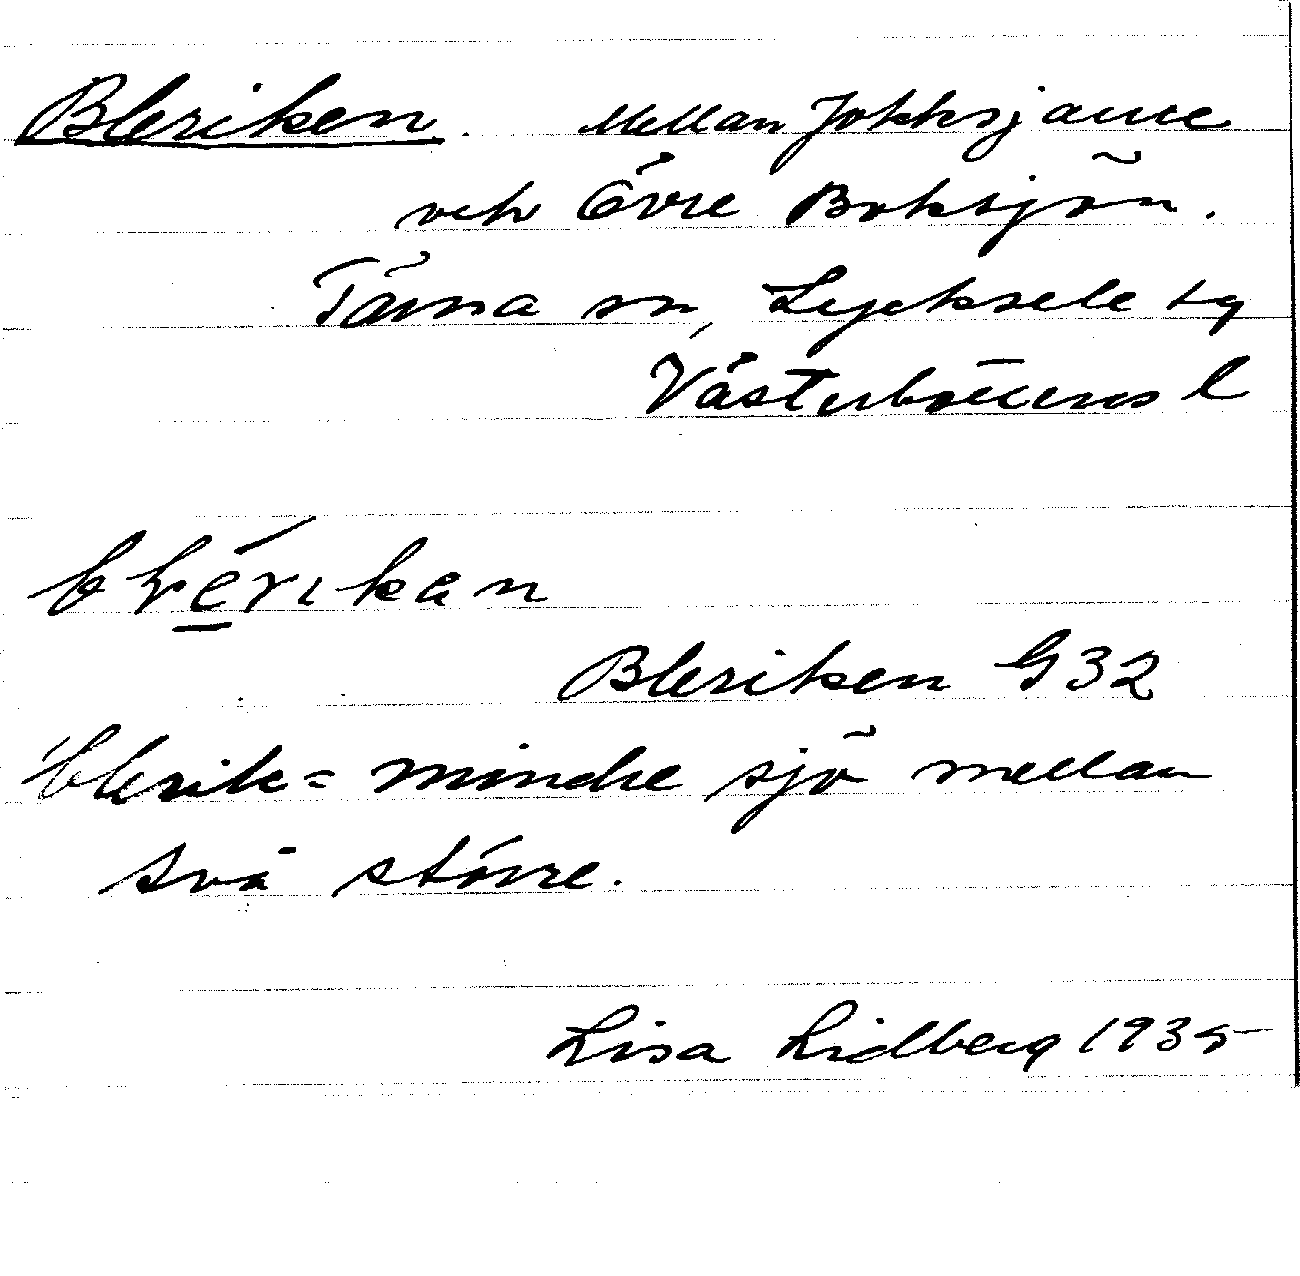 Bleriken. Mellan Jokksjaure
och Övre Boksjön.
Tärna sn, Lycksele tg
Västerbottens l
blérikan
Bleriken G32
blerik = mindre sjö mellan
två större.
Lisa Lidberg 1935